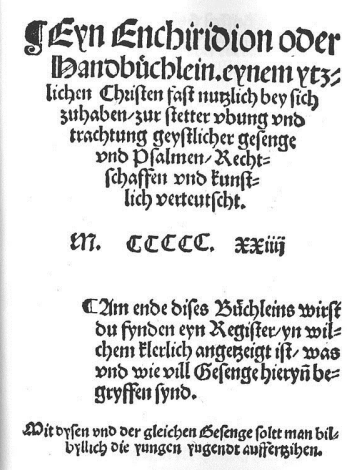 ¶Eyn Enchiridion oder
Handbüchlein. eynem ytz⸗
lichen Christen fast nutzlich bey sich
zuhaben/zur stetter vbung vnd
trachtung geystlicher gesenge
vnd Psalmen/Recht⸗
schaffen vnd kunst⸗
lich verteutscht.
M. CCCCC. xxiiij
¶Am ende dises Büchleins wirst
du fynden eyn Register/yn wil⸗
chem klerlich angetzeigt ist/was
vnd wie vill Gesenge hieryn̄ be⸗
gryffen synd.
Mit dysen vnd der gleichen Gesenge soltt man bil⸗
byllich die yungen yugendt auffertzihen.